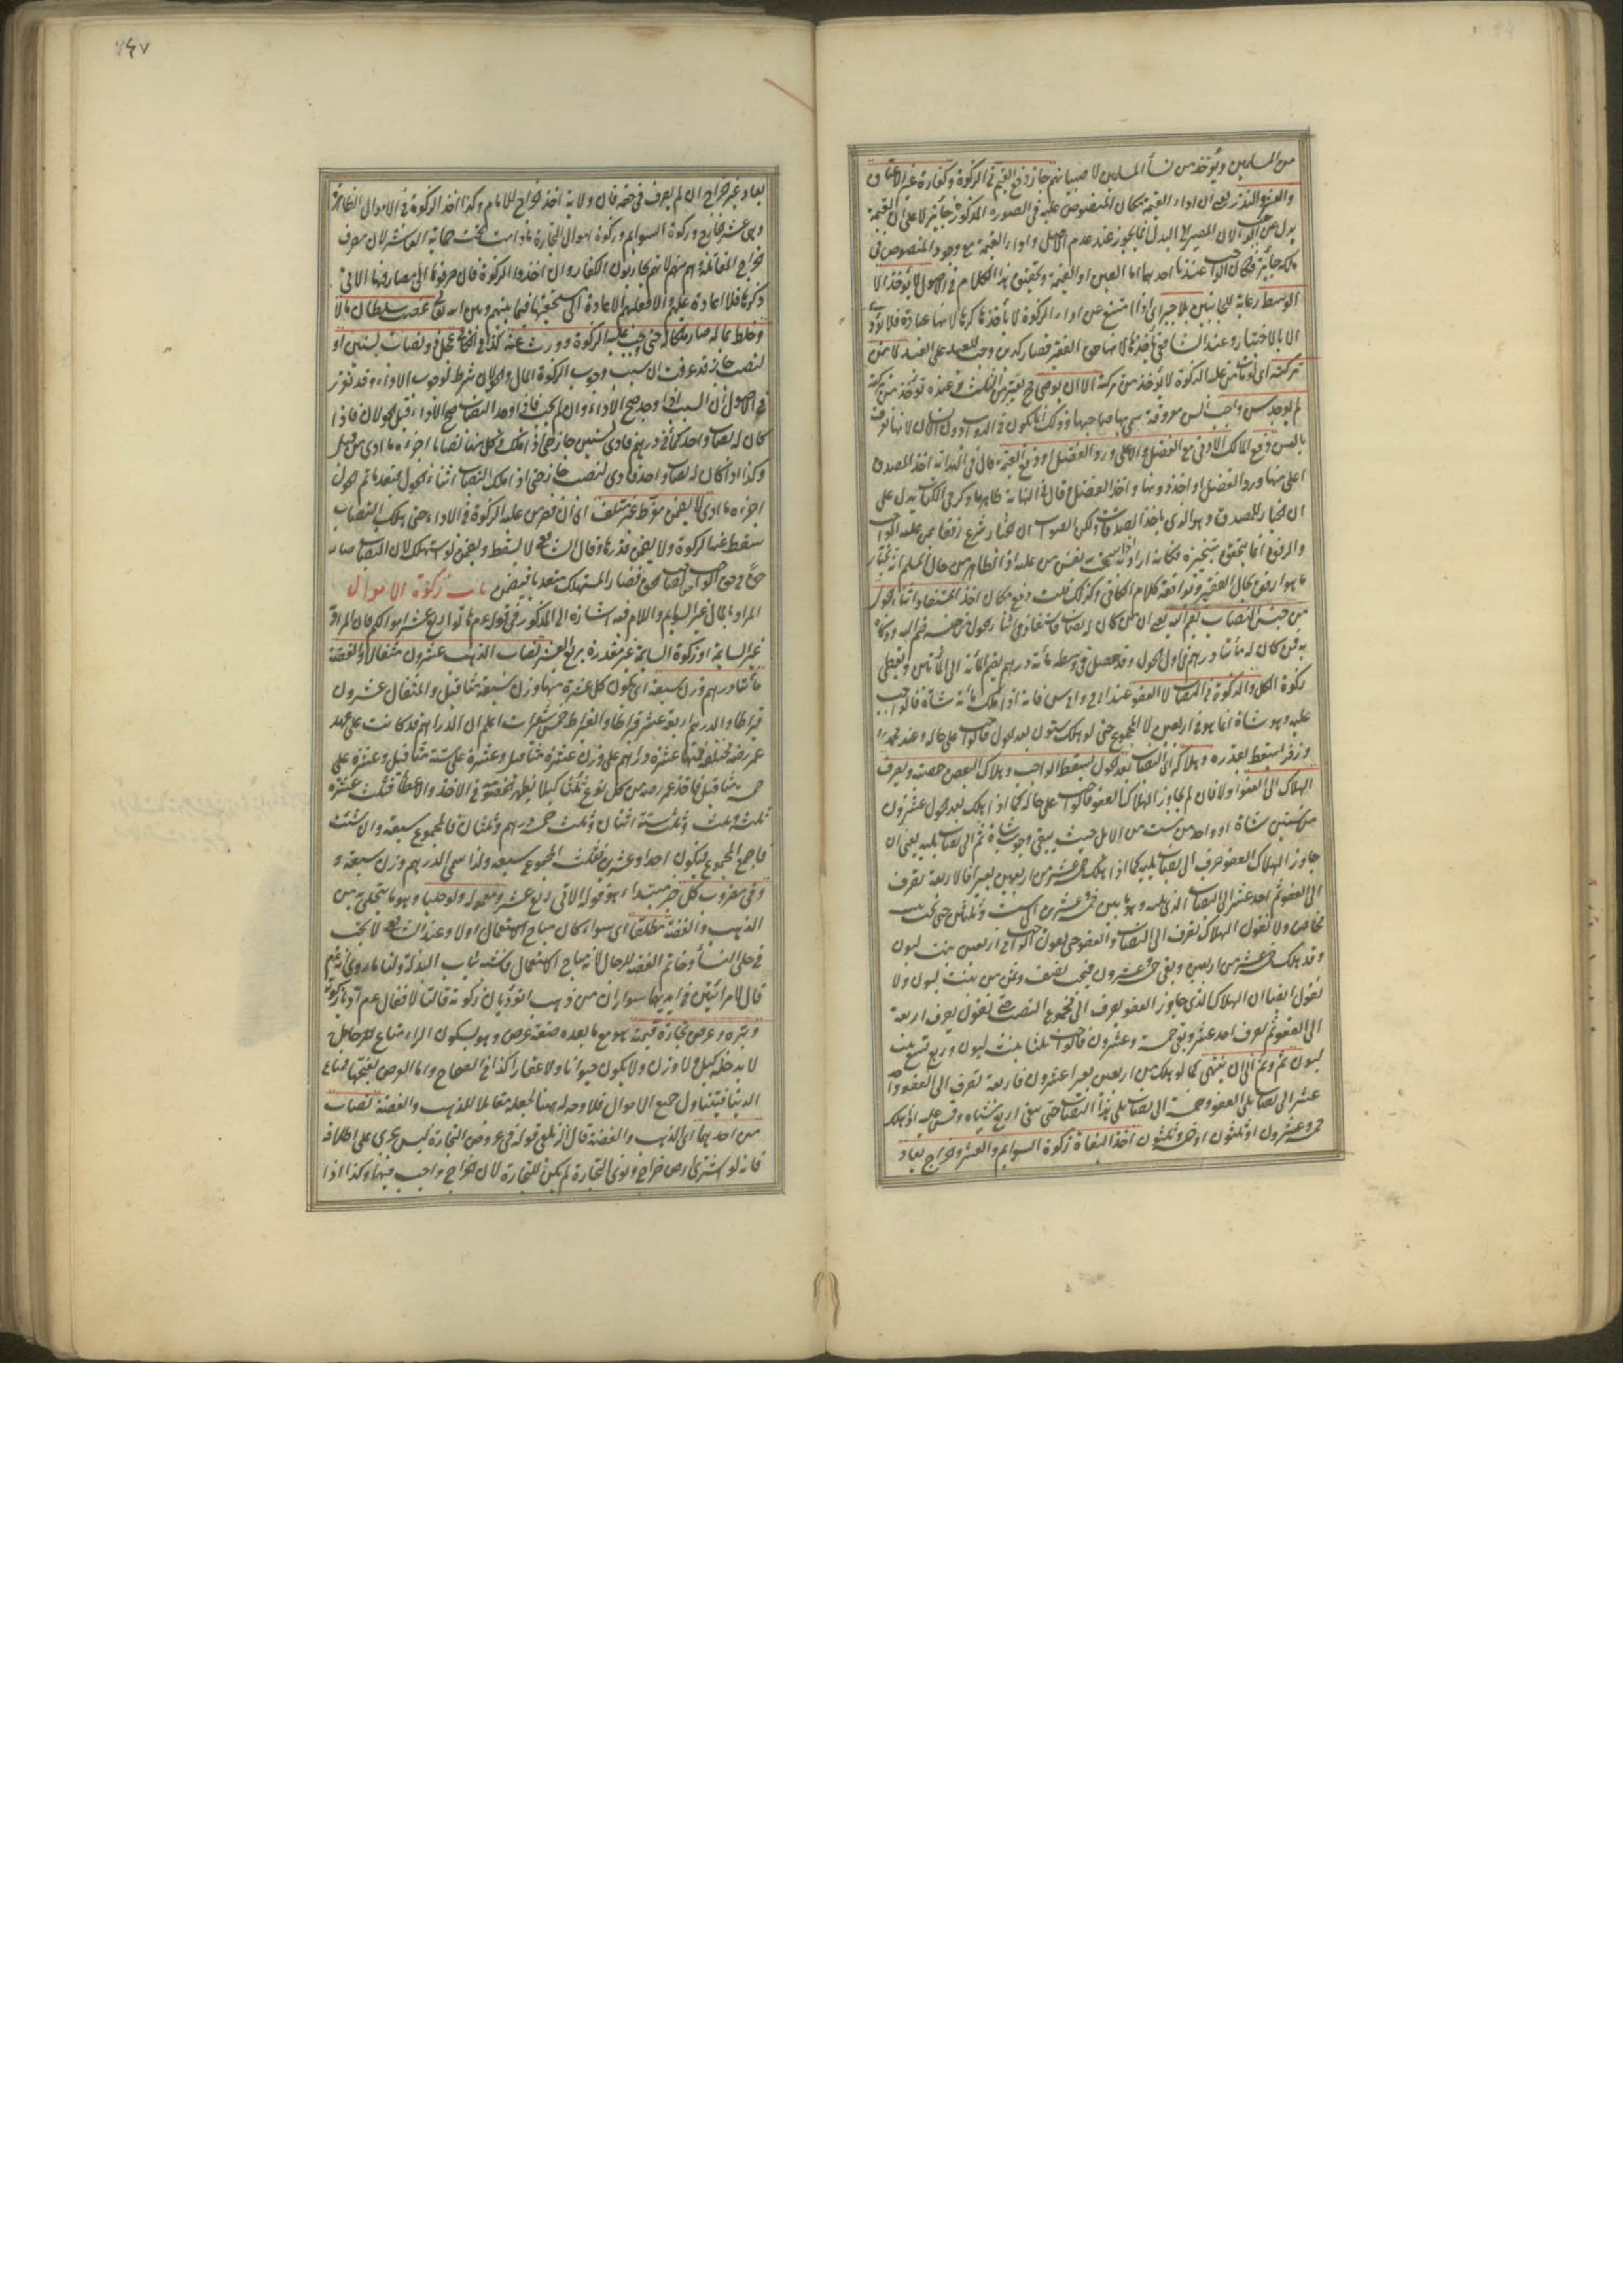 من المسلمين ويؤخذ من نسأ المسلمين لا صبيانهم جاز دفع القيم فى الزكوة وكفارة غير الاعتاق
والعشر والنذر يعنى ان اداء القيمة مكان المنصوص عليه فى الصورة المذكورة جائز لا على ان القيمة
بدل عن الواجب لان المصير الى البدل انما يجوز عند عدم الاصل واداء القيمة مع وجود المنصوص فى
ملكه جائز فكان الواجب عندنا احدهما اما العين او القيمة وتحقيق هذا الكلام فى الاصول لا يؤخذ الا
الوسط رعاية للجانبين بلا جبر اى اذا امتنع عن اداء الزكوة لا يأخذها كرها لانها عبادة فلا تؤدى
الا بالاختيار وعند الشافعى يأخذها لانها حق الفقير فصار كدين وجب للعبد على العبد لا من
تركته اى لو مات من عليه الزكوة لا تؤخذ من تركته الا ان يوصى فح يعتبر من الثلث وعنده تؤخذ من تركته
لم يوجد سن واجب السن معروفة سمى بها صاحبها وذلك انما يكون فى الدواب دون الانسان لانها تعرف
بالسن دفع المالك الادنى مع الفضل او الاعلى ورد الفضل او دفع القيمة قال فى الهداية اخذ المصدق
اعلى منها ورد الفضل او اخذ دونها واخذ الفضل قال فى النهاية ظاهر ما ذكر فى الكتاب يدل على
ان الخيار للمصدق وهو الذى يأخذ الصدقات ولكن الصواب ان الخيار شرع رفقا بمن عليه الواجب
والرفق انما يتحقق بتخييره فكانه اراد به اذا سمحت نفس من عليه اذ الظاهر من حال المسلم انه يختار
ما هو ارفق بحال الفقير ولموافقة كلام الكافى وكذلك قلت دفع مكان اخذ المستفاد اثناء الحول
من جنس النصاب يضم اليه يعنى ان من كان له نصاب فاستفاد فى اثناء الحول من جنسه ضمه اليه وزكاه
به فمن كان له مأتا درهم فى اول الحول وقد حصل فى وسطه مائة درهم يضم المائة الى المأتين ويعطى
زكوة الكل والزكوة فى النصاب لا العفو عند ابى ح وابى س فانه اذا ملك مائة شاة فالواجب
عليه وهو شاة انما هو فى اربعين لا المجموع حتى لو هلك ستون بعد الحول فالواجب على حاله وعند محمد
وزفر يسقط بقدره وهلاكه اى النصاب بعد الحول يسقط الواجب وهلاك البعض حصته ويصرف
الهلاك الى العفو اولا فان لم يجاوز الهلاك العفو فالواجب على حاله كما اذا هلك بعد الحول عشرون
من ستين شاة او واحد من ست من الابل حيث يبقى وجوب شاة ثم الى نصاب يليه يعنى ان
جاوز الهلاك العفو صرف الى نصاب يليه كما اذا هلك خمسة عشر من اربعين بعيرا فالاربعة تصرف
الى العفو ثم احد عشر الى النصاب الذى يليه وهو ما بين خمس وعشرين الى ست وثلثين حتى تجب بنت
مخاض ولا نقول الهلاك يصرف الى النصاب والعفو حتى نقول الواجب فى اربعين بنت لبون
وقد هلك خمسة عشر من اربعين وبقى خمسة وعشرون فيجب نصف وثمن من بنت لبون ولا
نقول ايضا ان الهلاك الذى جاوز العفو يصرف الى مجموع النصب حتى نقول يصرف اربعة
الى العفو ثم يصرف احد عشر وبقى خمسة وعشرون فالواجب ثلثا بنت لبون وربع تسع بنت
لبون ثم وثم الى ان ينتهى كما لو هلك من اربعين بعيرا عشرون فاربعة تصرف الى العفو واحد
عشر الى نصاب يلى العفو وخمسة الى نصاب يلى هذا النصاب حتى يبقى اربع شياه وقس عليه اذا هلك
خمسة وعشرون او ثلثون او خمسة وثلثون اخذ البغاة زكوة السوايم والعشر والخراج يعاد
يعاد غير الخراج ان لم يصرف فى حقه فان ولاية اخذ الخراج للامام وكذا اخذ الزكوة فى الاموال الظاهرة
وهى عشر الخارج وزكوة السوايم وزكوة اموال التجارة ما دامت تحت حماية العاشر لان مصرف
الخراج المقاتلة وهم منهم لانهم يحاربون الكفار وان اخذوا الزكوة فان صرفوها الى مصارفها الاتى
ذكرها فلا اعادة عليهم والا فعليهم الاعادة الى مستحقيها فيما بينهم وبين الله تعالى غصب سلطان مالا
وخلط بماله صار ملكا له حتى وجب عليه الزكوة وورث عنه كذا فى الكافى عجل ذو نصاب لسنين او
لنصب جاز قد عرفت ان سبب وجوب الزكوة المال والحولان شرط لوجوب الاداء وقد تقرر
فى الاصول ان السبب اذا وجد صح الاداء وان لم يجب فاذا وجد النصاب صح الاداء قبل الحولان فاذا
كان له نصاب واحد كمأتى درهم فادى لسنين جاز حتى اذا ملك فى كل منها نصابا اجزءه ما ادى من قبل
وكذا اذا كان له نصاب واحد فادى لنصب جاز حتى اذا ملك النصاب اثناء الحول فبعد ما تم الحول
اجزءه ما ادى لا يضمن مفرط غير متلف اى ان قصر من عليه الزكوة فى الاداء حتى هلك النصاب
سقط عنه الزكوة ولا يضمن قدرها وقال الشافعى لا يسقط ويضمن لو استهلك لان النصاب صار
حقا فى حق الواجب لصاحب الحق فصار المستهلك متعديا فيضمن باب زكوة الاموال
المراد بالمال غير السوايم واللام فيه اشارة الى المذكور فى قوله عم هاتوا ربع عشر اموالكم فان المراد
غير السايمة اذ زكوة السايمة غير مقدرة بربع العشر نصاب الذهب عشرون مثقالا والفضة
مأتا درهم وزن سبعة اى يكون كل عشرة منها وزن سبعة مثاقيل والمثقال عشرون
قيراطا والدرهم اربعة عشر قيراطا والقيراط خمس شعيرات اعلم ان الدراهم قد كانت على عهد
عمر رضه مختلفة فمنها عشرة دراهم على وزن عشرة مثاقيل وعشرة على ستة مثاقيل وعشرة على
خمسة مثاقيل فاخذ عمر رضه من كل نوع ثلثا كيلا يظهر الخصومة فى الاخذ والاعطأ فثلث عشرة
ثلثة وثلث وثلث ستة اثنان وثلث خمسة درهم وثلثان فالمجموع سبعة وان شئت
فاجمع المجموع فيكون احدا وعشرين فثلث المجموع سبعة ولذا سمى الدرهم وزن سبعة و
وفى مضروب كل خبر مبتداء هو قوله الاتى ربع عشر ومعموله ولو حليا وهو ما يتحلى به من
الذهب والفضة مطلقا اى سواء كان مباح الاستعمال اولا وعند الشافعى لا يجب
فى حلى النسأ وخاتم الفضة للرجال لانه مباح الاستعمال فاشبه ثياب البذلة ولنا ما روى انه عم
قال لامرأتين فى ايديهما سواران من ذهب اتؤديان زكوته قالتا لا فقال عم اديا زكوته
وتبره وعرض تجارة قيمته هو مع ما بعده صفة عرض وهو بسكون الراء متاع
لا يدخله كيل ولا وزن ولا يكون حيوانا ولا عقارا كذا فى الصحاح واما العرض بفتحها فمتاع
الدنيا فيتناول جميع الاموال فلا وجه له ههنا لجعله مقابلا للذهب والفضة نصاب
من احدهما اى الذهب والفضة قال الزيلعى قوله فى عروض التجارة ليس يجرى على اطلاقه
فانه لو اشترى ارض خراج ونوى التجارة لم يكن للتجارة لان الخراج واجب فيها وكذا اذا